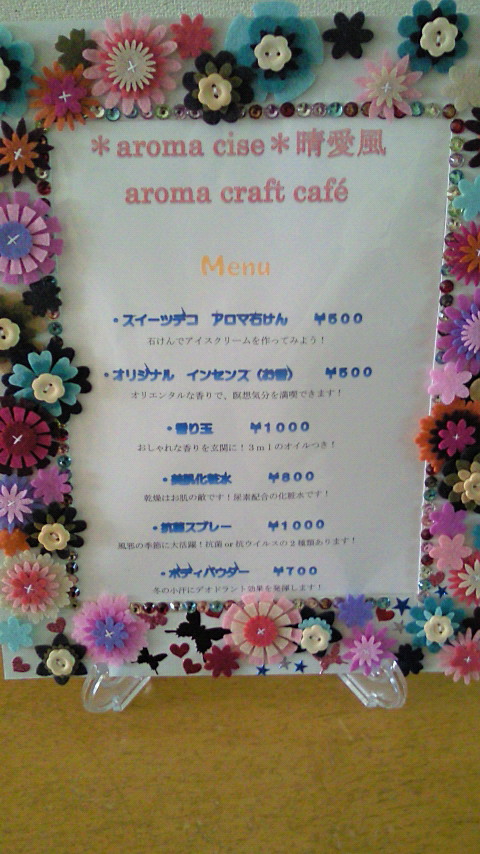 ＊aroma cise＊晴愛風
aroma craft café
Menu
・スイーツデコ　アロマ石けん　￥５００
石けんでアイスクリームを作ってみよう！
・オリジナル　インセンス（お香）　￥５００
オリエンタルな香りで、瞑想気分を満喫できます！
・香り玉　￥１０００
おしゃれな香りを玄関に！３ｍｌのオイルつき！
・美肌化粧水　￥８００
乾燥はお肌の敵です！尿素配合の化粧水です！
・抗菌スプレー　￥１０００
風邪の季節に大活躍！抗菌 or 抗ウイルスの２種類あります！
・ボディパウダー　￥７００
冬の小汗にデオドラント効果を発揮します！